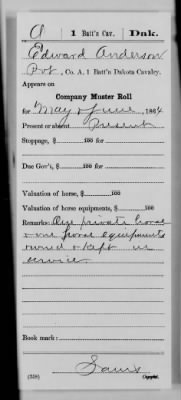 A | 1 Batt'n Cav. | Dak.
Edward Anderson
Pvt, Co. A, 1 Batt'n Dakota Cavalry.
Appears on
Company Muster Roll
for May & June, 1864
Present or absent Present
Stoppage, $ 100 for
Due Gov't, $ 100 for
Valuation of horse, $ 100
Valuation of horse equipments, $ 100
Remarks: One private horse
& one horse equipments
owned & kept in
service
Book mark:
(358) Copyist.